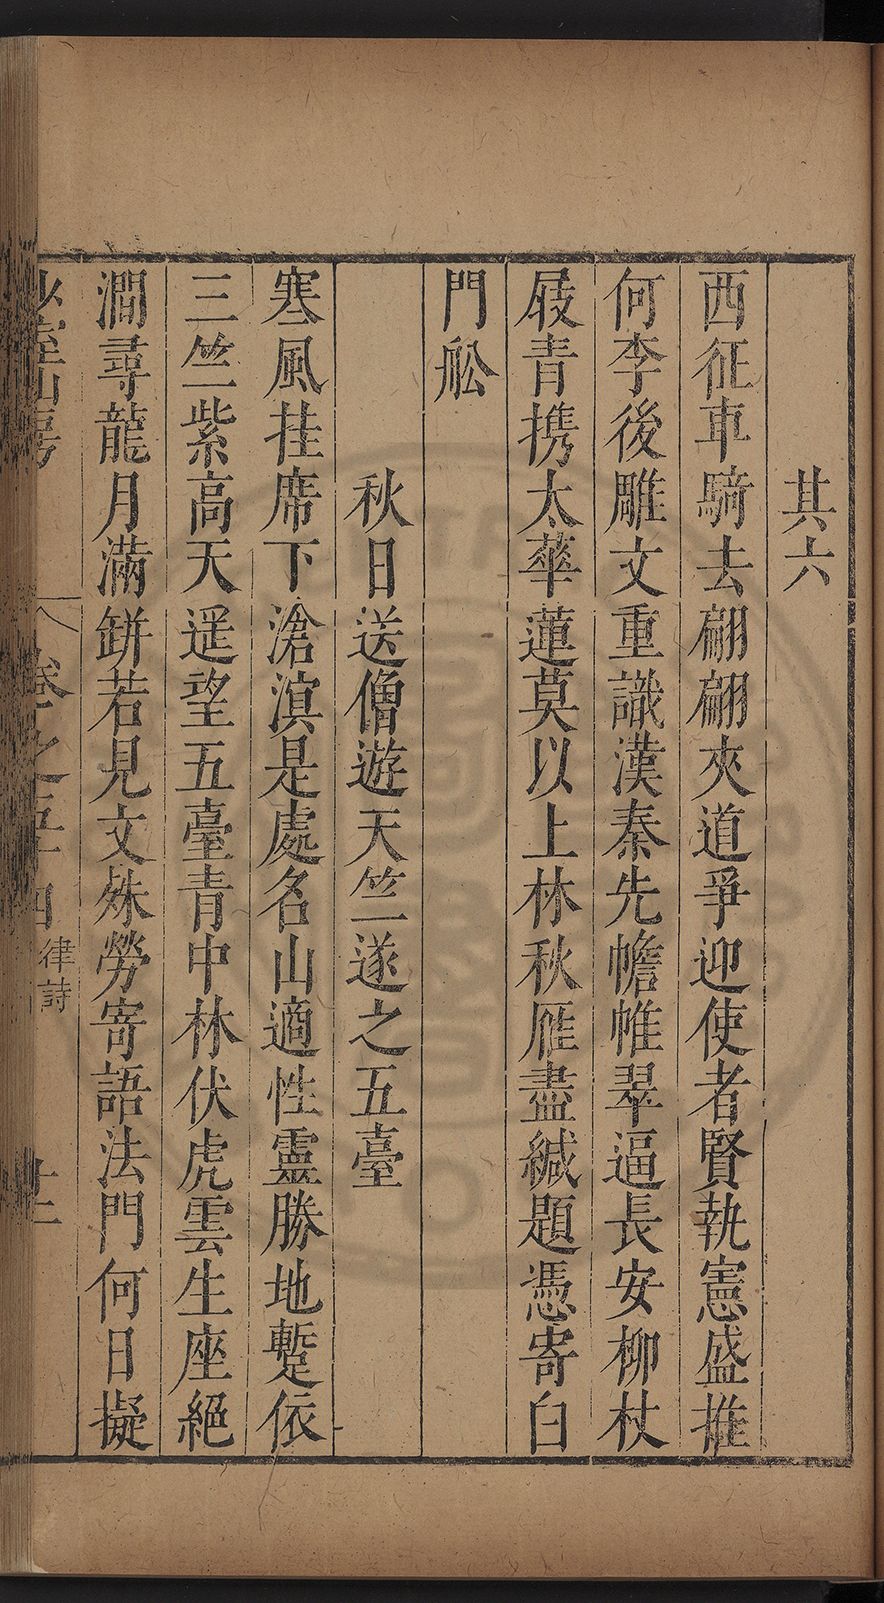 其六
西征車騎去翩翩夾道爭迎使者賢執憲盛推
何李後雕文重識漢秦先幨帷翠逼長安柳杖
屐青携太華蓮莫以上林秋雁盡緘題憑寄白
門舩
秋日送僧遊天竺遂之五臺
寒風挂席下滄溟是處名山適性靈勝地蹔依
三竺紫高天遥望五臺青中林伏虎雲生座絕
澗尋龍月滿缾若見文殊勞寄語法門何日擬
少室山房 卷之五十四 律詩 廿二